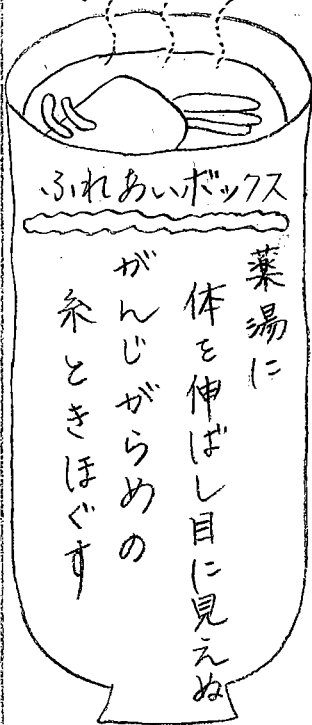 ふれあいボックス
薬湯に
体を伸ばし目に見えぬ
がんじがらめの
糸ときほぐす